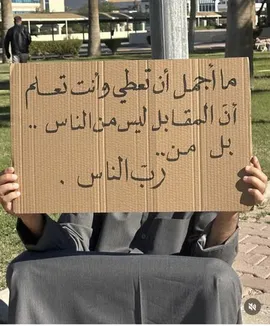 ما أجمل أن تعطي وأنت تعلم
أن المقابل ليس من الناس ..
بل من..
ربّ الناس .